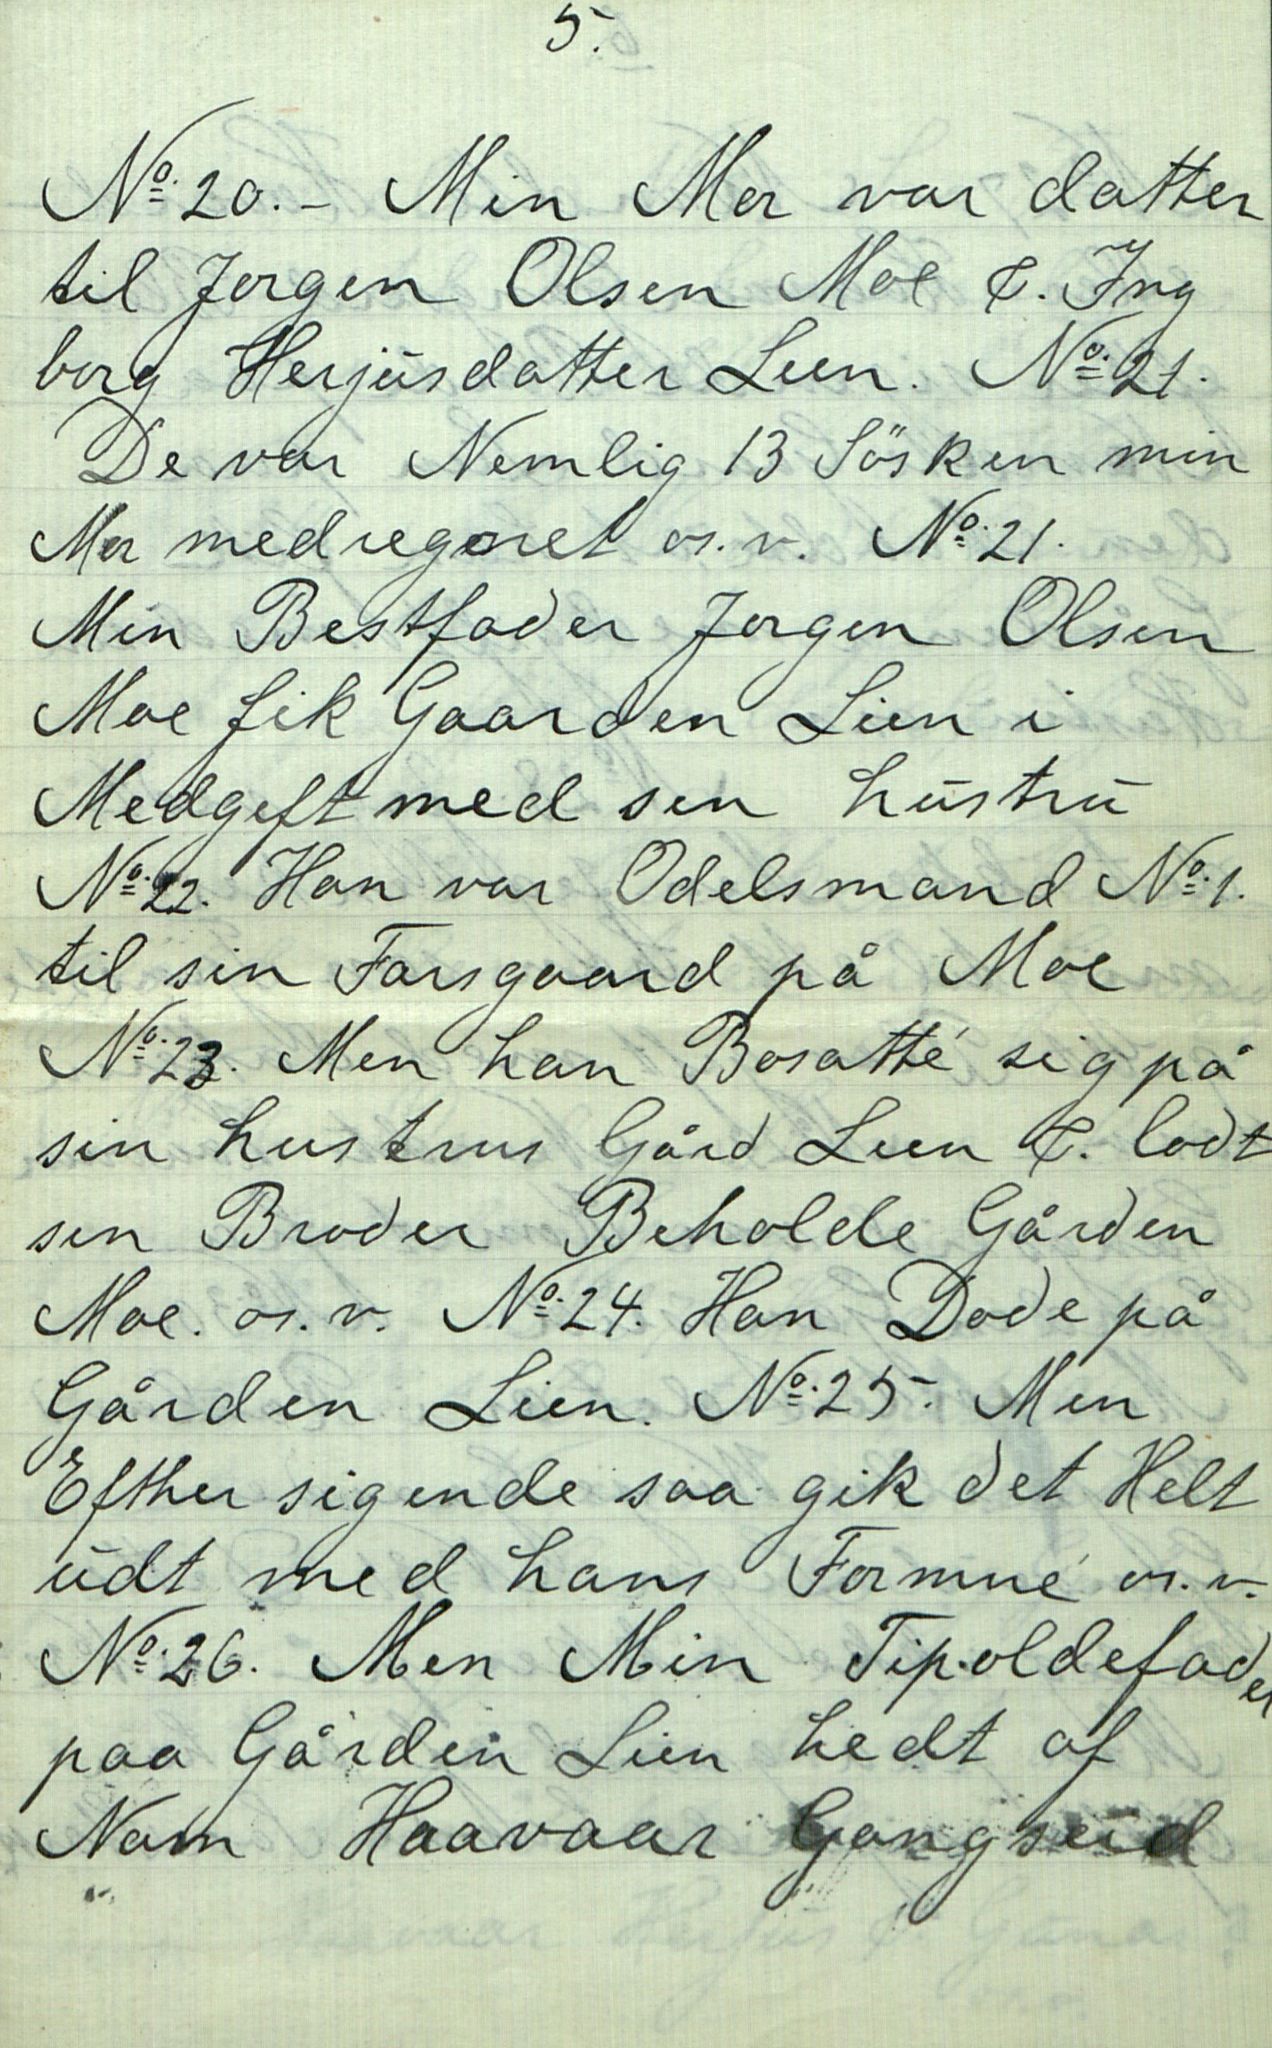 5.
No. 20. - Min Mor var datter
til Jorgen Olsen Moe &. Ing
borg Herjüsdatter Lien. No. 21.
De var Nemlig 13 Sösken min
Mor medregnet os. v. No. 21.
Min Bestfader Jorgen Olsen
Moe fik Gaarden Lien i
Medgift med sin hüstrü
No. 22. Han var Odelsmand No. 1.
til sin Farsgaard på Moe
No. 23. Men han Bosatté sig på
sin hustrus Gård Lien &. lodt
sin Broder Beholde Gården
Moe. os. v. No. 24. Han Dode på
Gården Lien. No. 25. Men
Efther sigende saa gik det Helt
üdt med hans Formué os. v.
No. 26. Men Min Tipoldefader
paa Gården Lien hedt af
Nam Haavaar Gangseid